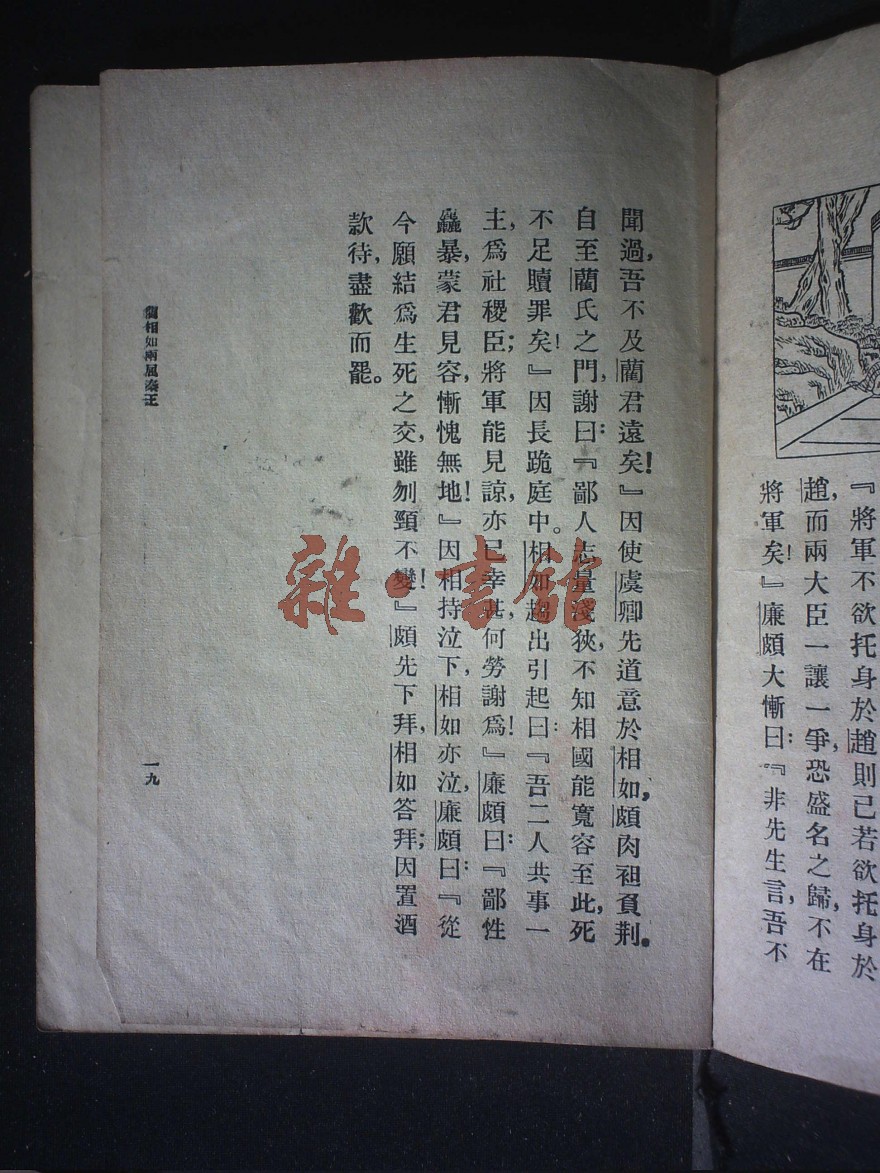 『將軍不欲托身於趙則已若欲托身於
趙,而兩大臣一讓一爭,恐盛名之歸,不在
將軍矣!』廉頗大慚曰:『非先生言,吾不
聞過,吾不及藺君遠矣!』因使虞卿先道意於相如,頗肉袒負荆。
自至藺氏之門,謝曰:『鄙人志量淺狹,不知相國能寬容至此,死
不足贖罪矣!』因長跪庭中。相如趨出引起曰:『吾二人共事一
主,爲社稷臣;將軍能見諒,亦已幸甚,何勞謝爲!』廉頗曰:『鄙性
麤暴,蒙君見容,慚愧無地!』因相持泣下,相如亦泣,廉頗曰:『從
今願結爲生死之交,雖刎頸不變!』頗先下拜,相如答拜;因置酒
款待,盡歡而罷。
藺相如兩屈秦王
一九
雜·書館